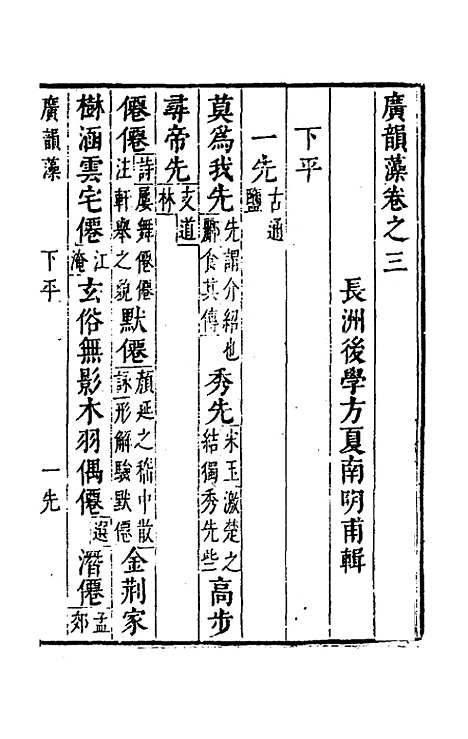 廣韻藻卷之三
長洲後學方夏南明甫輯
下平
一先古通鹽
莫爲我先先謂介紹也酈食其傳秀先宋玉激楚之結獨秀先些高步
尋帝先支道林
僊僊詩屢舞僊僊注軒舉之貌默僊顏延之嵇中散詠形解驗默僊金荊家
樹涵雲宅僊江淹玄俗無影木羽偶僊選潛僊孟郊
廣韻藻 下平 一先